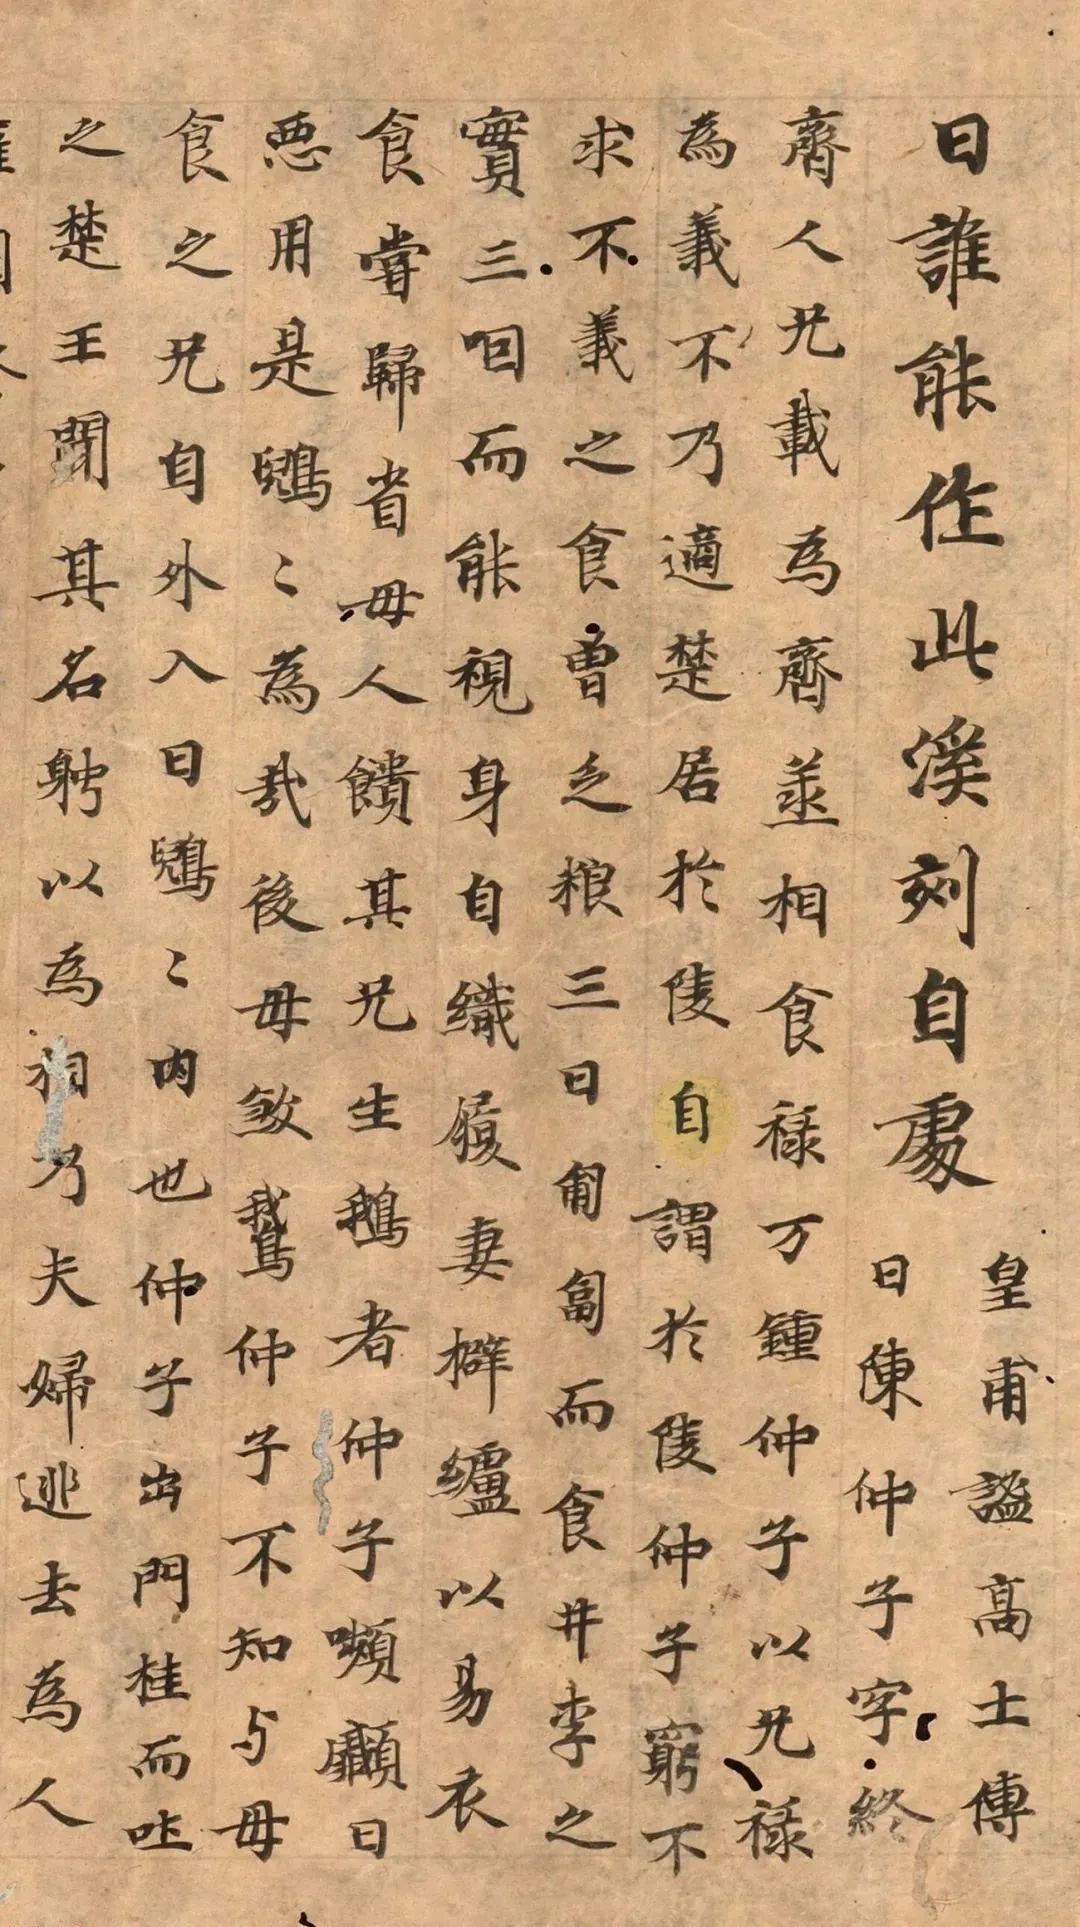 曰誰能作此溪刻自處
皇甫謐髙士傳
曰陳仲子字終
齊人兄載為齊並相食禄万鍾仲子以兄禄
為義不乃適楚居於陵自謂於陵仲子窮不
求不義之食曽乏粮三日匍匐而食井李之
實三咽而能視身自織屨妻擗纑以易衣
食嘗歸省母人饋其兄生鵝者仲子嚬顣曰
悪用是鶃〻為㢤後母煞鵞仲子不知与母
食之兄自外入曰鶃〻内也仲子出門桂而吐
之楚王聞其名聘以為相乃夫婦逃去為人